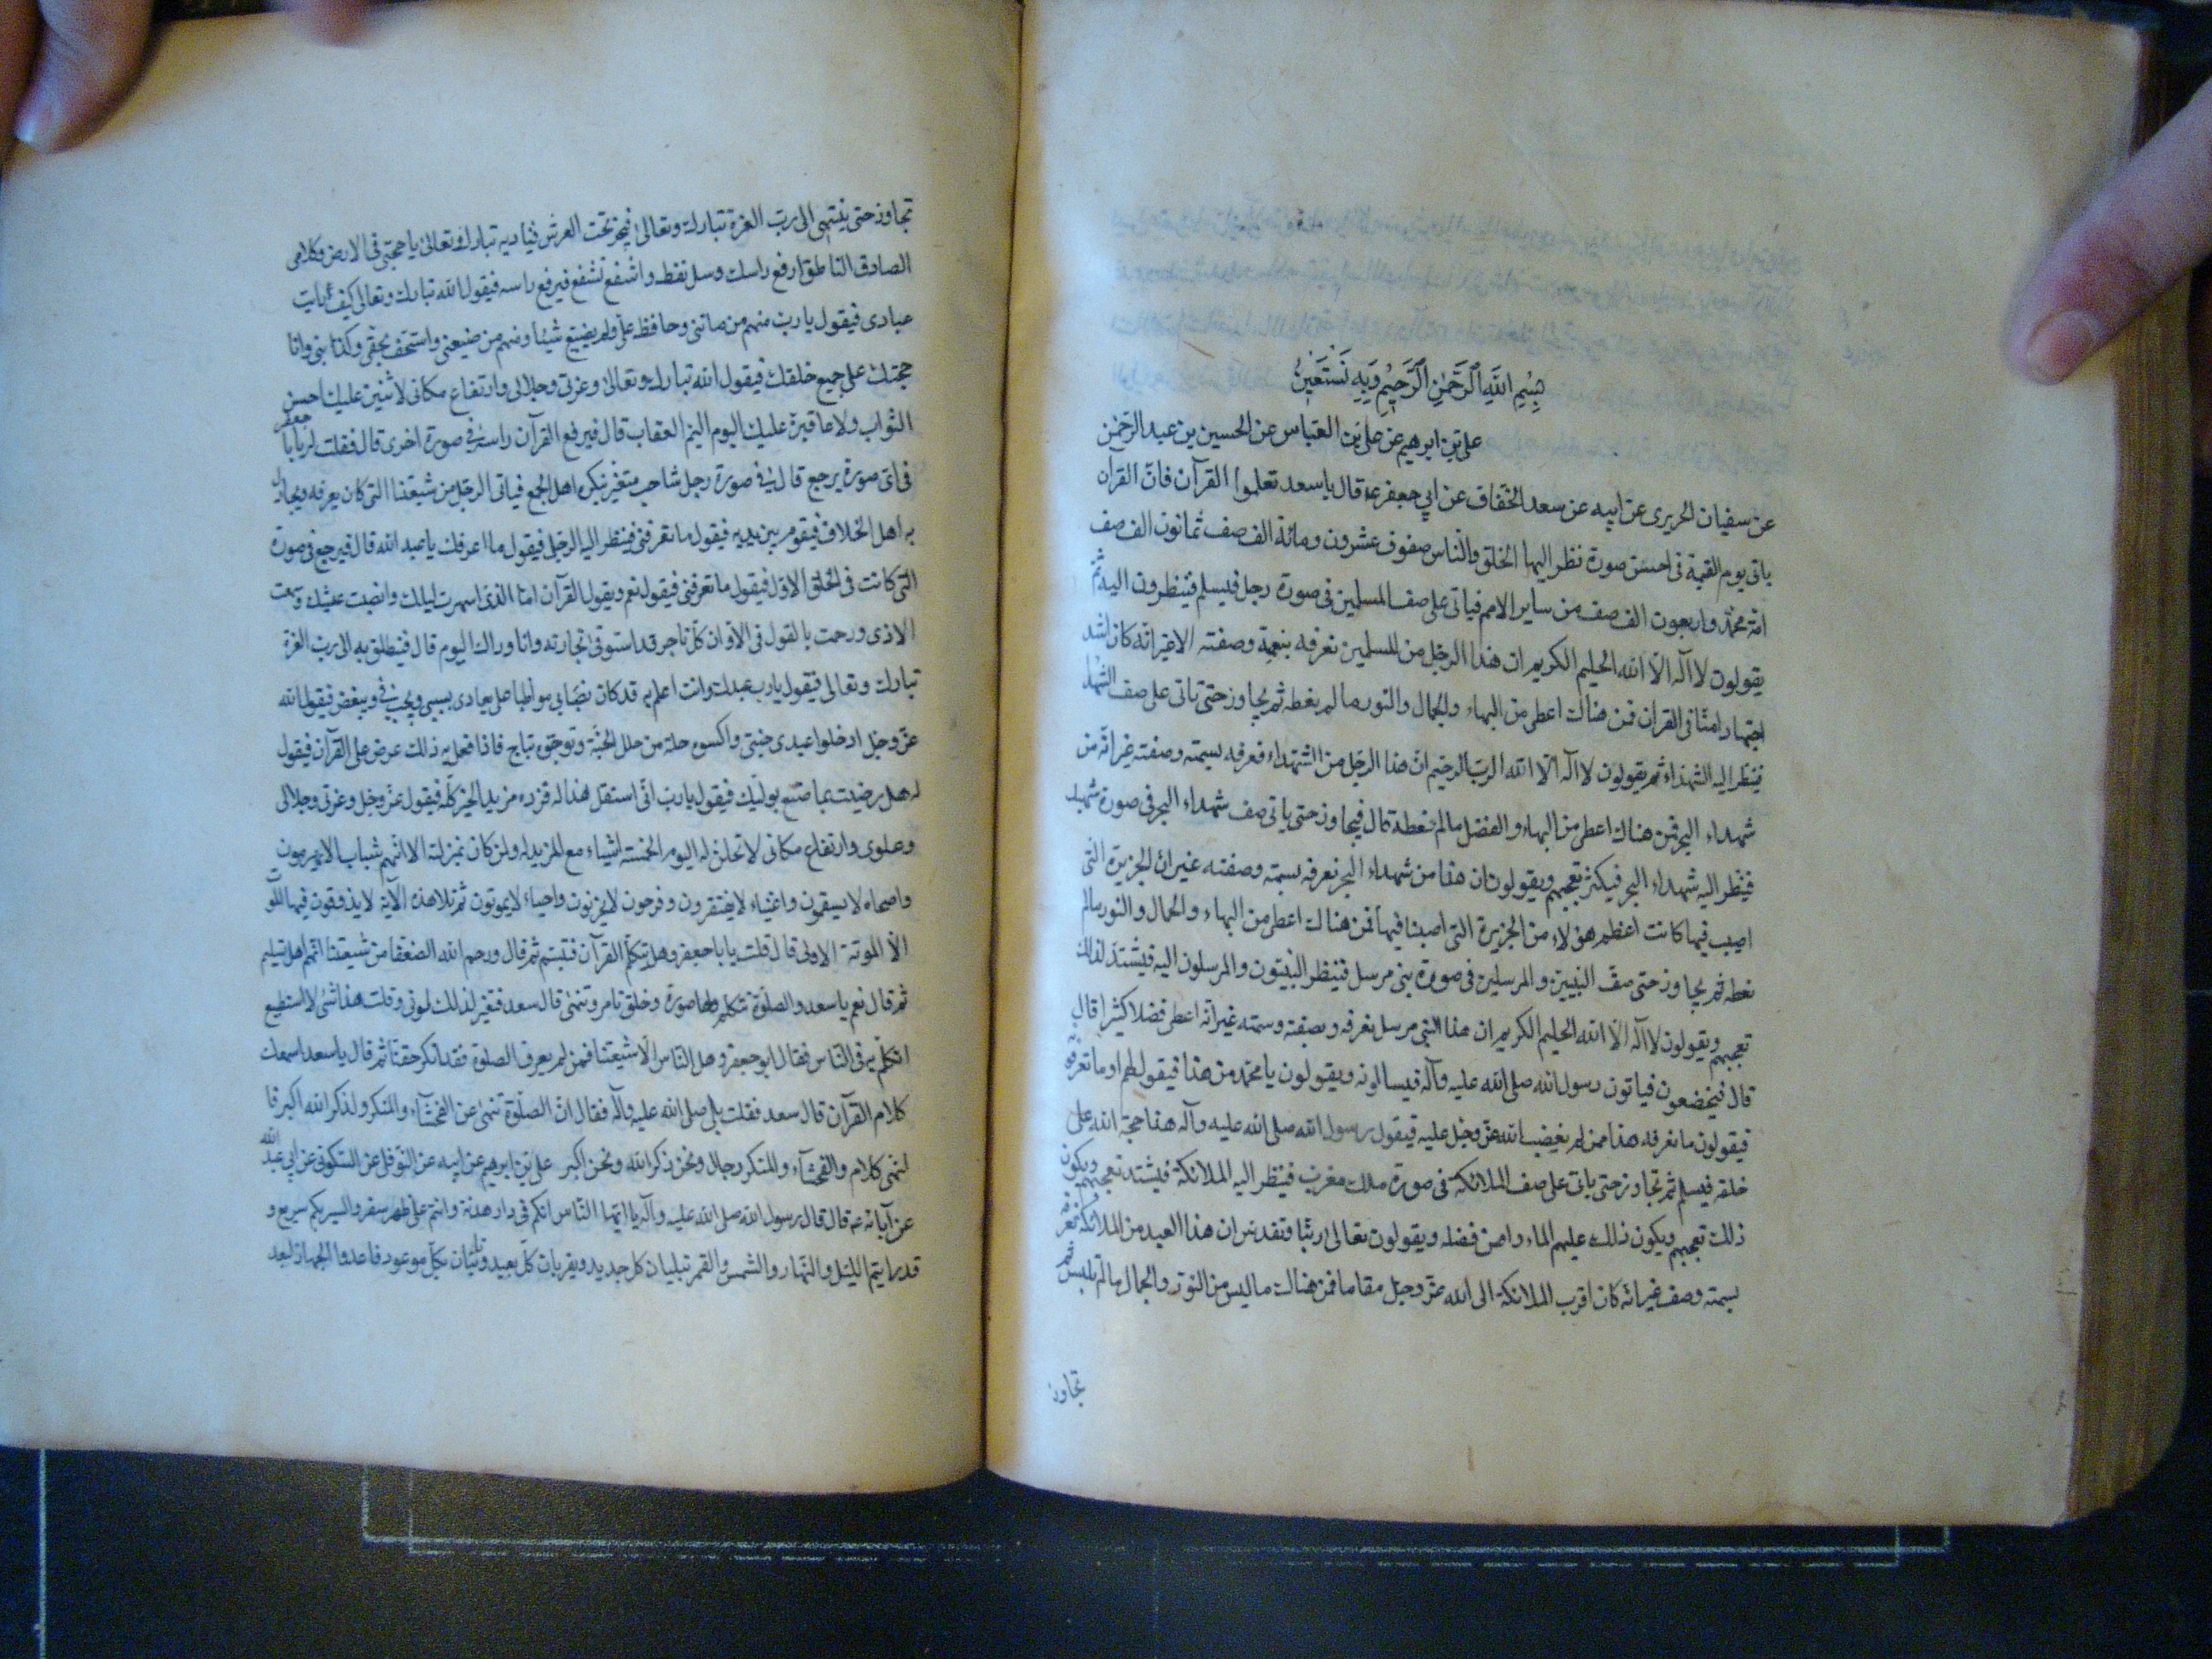 بِسْمِ اللهِ الرَّحْمٰنِ الرَّحِيمِ وَبِهِ نَسْتَعِينُ
على بن ابرهيم عن على بن العباس عن الحسين بن عبد الرحمن
عن سفيان الحريرى عن ابيه عن سعد الخفاف عن ابي جعفر ع قال يا سعد تعلموا القرآن فانّ القرآن
ياتى يوم القيمة فى احسن صورة نظر اليها الخلق والناس صفوف عشرون ومائة الف صف ثمانون الف صف
امة محمّد واربعون الف صف من ساير الامم فياتى على صف المسلمين فى صورة رجل فيسلم فينظرون اليه ثم
يقولون لا اله الا الله الحليم الكريم ان هذا الرجل من المسلمين نعرفه بنعته وصفته الا غير انه كان اشد
اجتهادا منّا فى القران فمن هناك اعطى من البهاء والجمال والنور ما لم نعطه ثم يجاوز حتى ياتى على صف الشهدا
فينظر اليه الشهداء ثم يقولون لا اله الا الله الرب الرحيم انّ هذا الرجل من الشهداء نعرفه بسمته وصفته غير انّه من
شهداء البحر فمن هناك اعطى من البهاء والفضل ما لم نعطه قال فيجاوز حتى ياتى صف شهداء البحر فى صورة شهيد
فينظر اليه شهداء البحر فيكثر تعجبهم ويقولون ان هذا من شهداء البحر نعرفه بسمته وصفته غير ان الجزيرة التى
اصيب فيها كانت اعظم هولا من الجزيرة التى اصبنا فيها فمن هناك اعطى من البهاء والجمال والنور مالم
نعطه ثم يجاوز حتى صفّ النبيين والمرسلين فى صورة نبى مرسل فينظر النبيّون والمرسلون اليه فيشتد لذلك
تعجبهم ويقولون لا اله الا الله الحليم الكريم ان هذا النبى مرسل نعرفه وبصفته وسمته غير انّه اعطى فضلا كثيرا قال
قال فيخضعون فياتون رسول الله صلى الله عليه وآله فيسالونه ويقولون يا محمّد من هذا فيقول لهم اوما تعرفونه
فيقولون ما نعرفه هذا ممن لم يغضب الله عزّ وجلّ عليه فيقول رسول الله صلى الله عليه وآله هذا حجة الله على
خلقه فيسلم ثم تجاوز حتى ياتى على صف الملائكة فى صورة ملك مقرب فينظر اليه الملائكة فيشتد تعجبهم ويكون
ذلك تعجبهم ويكون ذلك عليهم فضله ويقولون تعالى ربّنا وتقدس ان هذا العبد من الملائكة نعرفه
بسمته وصفه غير انّه كان اقرب الملائكة الى الله عزّ وجلّ مقاما فمن هناك ما ليس من النور والجمال ما لم نلبس ثم
تجاوز
تجاوز حتى ينتهى الى ربّ العزة تبارك وتعالى فيخر تحت العرش فيناديه تبارك وتعالى يا حجتى فى الارض وكلامى
الصادق الناطق ارفع راسك وسل تعط واشفع تشفع فيرفع راسه فيقول الله تبارك وتعالى كيف رايت
عبادى فيقول يا رب منهم من صاننى وحافظ علىّ ولم يضيّع شيئا ومنهم من ضيعنى واستخف بحقى وكذّب بى وانا
حجتك على جميع خلقك فيقول الله تبارك وتعالى وعزتى وجلالى وارتفاع مكانى لاثيبن عليك احسن
الثواب ولاعاقبنّ عليك اليوم اليم العقاب قال فيرفع القرآن راسه فى صورة اخرى قال فقلت له يا با جعفر
فى اى صورة يرجع قال فى صورة رجل شاحب متغيّر ينكره اهل الجمع فياتى الرجل من شيعتنا التى كان يعرفه ويجادل
به اهل الخلاف فيقوم بين يديه فيقول ما تعرفنى فينظر اليه الرجل فيقول ما اعرفك يا عبد الله قال فيرجع فى صورة
التى كانت فى الخلق الاوّل فيقول ما تعرفنى فيقول نعم ويقول القرآن انا الذى اسهرت ليلك وانصبت عيشك وسمعت
الاذى ورجمت بالقول فى الا وان كلّ تاجر قد استوفى تجارته وانا وراك اليوم قال فينطلق به الى رب العزة
تبارك وتعالى فيقول يا رب عبدك وانت اعلم به قد كان نصبا بى مواظبا على يعادى بسببى ويحب فىّ ويبغض فيقول الله
عزّ وجلّ ادخلوا عبدى جنتى واكسوه حلة من حلل الجنّة وتوجوه بتاج فاذا فعل به ذلك عرض على القرآن فيقول
له هل رضيت بما صنع بوليّك فيقول يا رب انّى استقل هذا له فزده مزيد الخير كلّه فيقول عزّ وجلّ وعزتى وجلالى
وعلوى وارتفاع مكانى لانحلنّ له اليوم الخمسة اشياء مع المزيد له ولمن كان بمنزلته الا انّهم شباب لا يهرمون
واصحاء لا يسقمون واغنياء لا يفتقرون وفرحون لا يحزنون واحياء لا يموتون ثم تلا هذه الآية لا يذوقون فيها الموت
الا الموتة الاولى قال قلت يا با جعفر وهل يتكلّم القرآن فتبسّم ثم قال ورحم الله الضعفا من شيعتنا انّهم اهل تسليم
ثم قال نعم يا سعد والصلوة تتكلم ولها صورة وخلق تامر وتنهى قال سعد فتغيّر لذلك لونى وقلت هذا شئ لا استطيع
اتكلّم به فى النّاس فقال ابو جعفر وهل النّاس الّا شيعتنا فمن لم يعرف الصلوة فقد انكر حقّنا ثم قال يا سعد اسمعك
كلام القرآن قال سعد فقلت بلى صلى الله عليه وآله فقال انّ الصلوة تنهى عن الفحشآء والمنكر ولذكر الله اكبر فا
لنهى كلام والفحشآء والمنكر رجال ونحن ذكر الله ونحن اكبر على بن ابرهيم عن ابيه عن النوفلى عن السكونى عن ابى عبد الله
عن آبائه ع قال قال رسول الله صلى الله عليه وآله يا ايّها النّاس انكم فى دار هدنة وانتم على ظهر سفر والسير بكم سريع و
قد رايتم الليل والنّهار والشمس والقمر تبليان كل جديد ويقربان كلّ بعيد وياتيان بكلّ موعود فاعدوا الجهاز لبعد